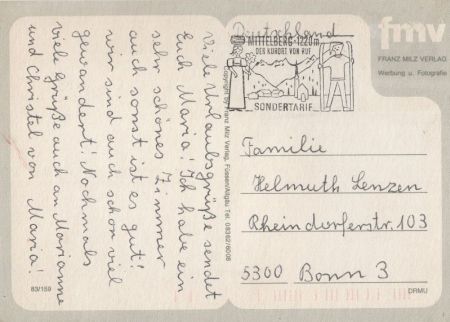 Viele Urlaubsgrüße sendet
Euch Maria! Ich habe ein
sehr schönes Zimmer
auch sonst ist es gut!
wir sind auch schon viel
gewandert! Nochmals
viele Grüße auch an Marianne
und Christel von Maria!
83/159
Deutschland
MITTELBERG · 1220 m
DER KURORT VON RUF
SONDERTARIF
fmv
FRANZ MILZ VERLAG
Werbung u. Fotografie
Copyright by Franz Milz Verlag, Füssen/Allgäu Tel. 08362/6038
Familie
Helmuth Lenzen
Rheindorferstr. 103
5300 Bonn 3
DRMU